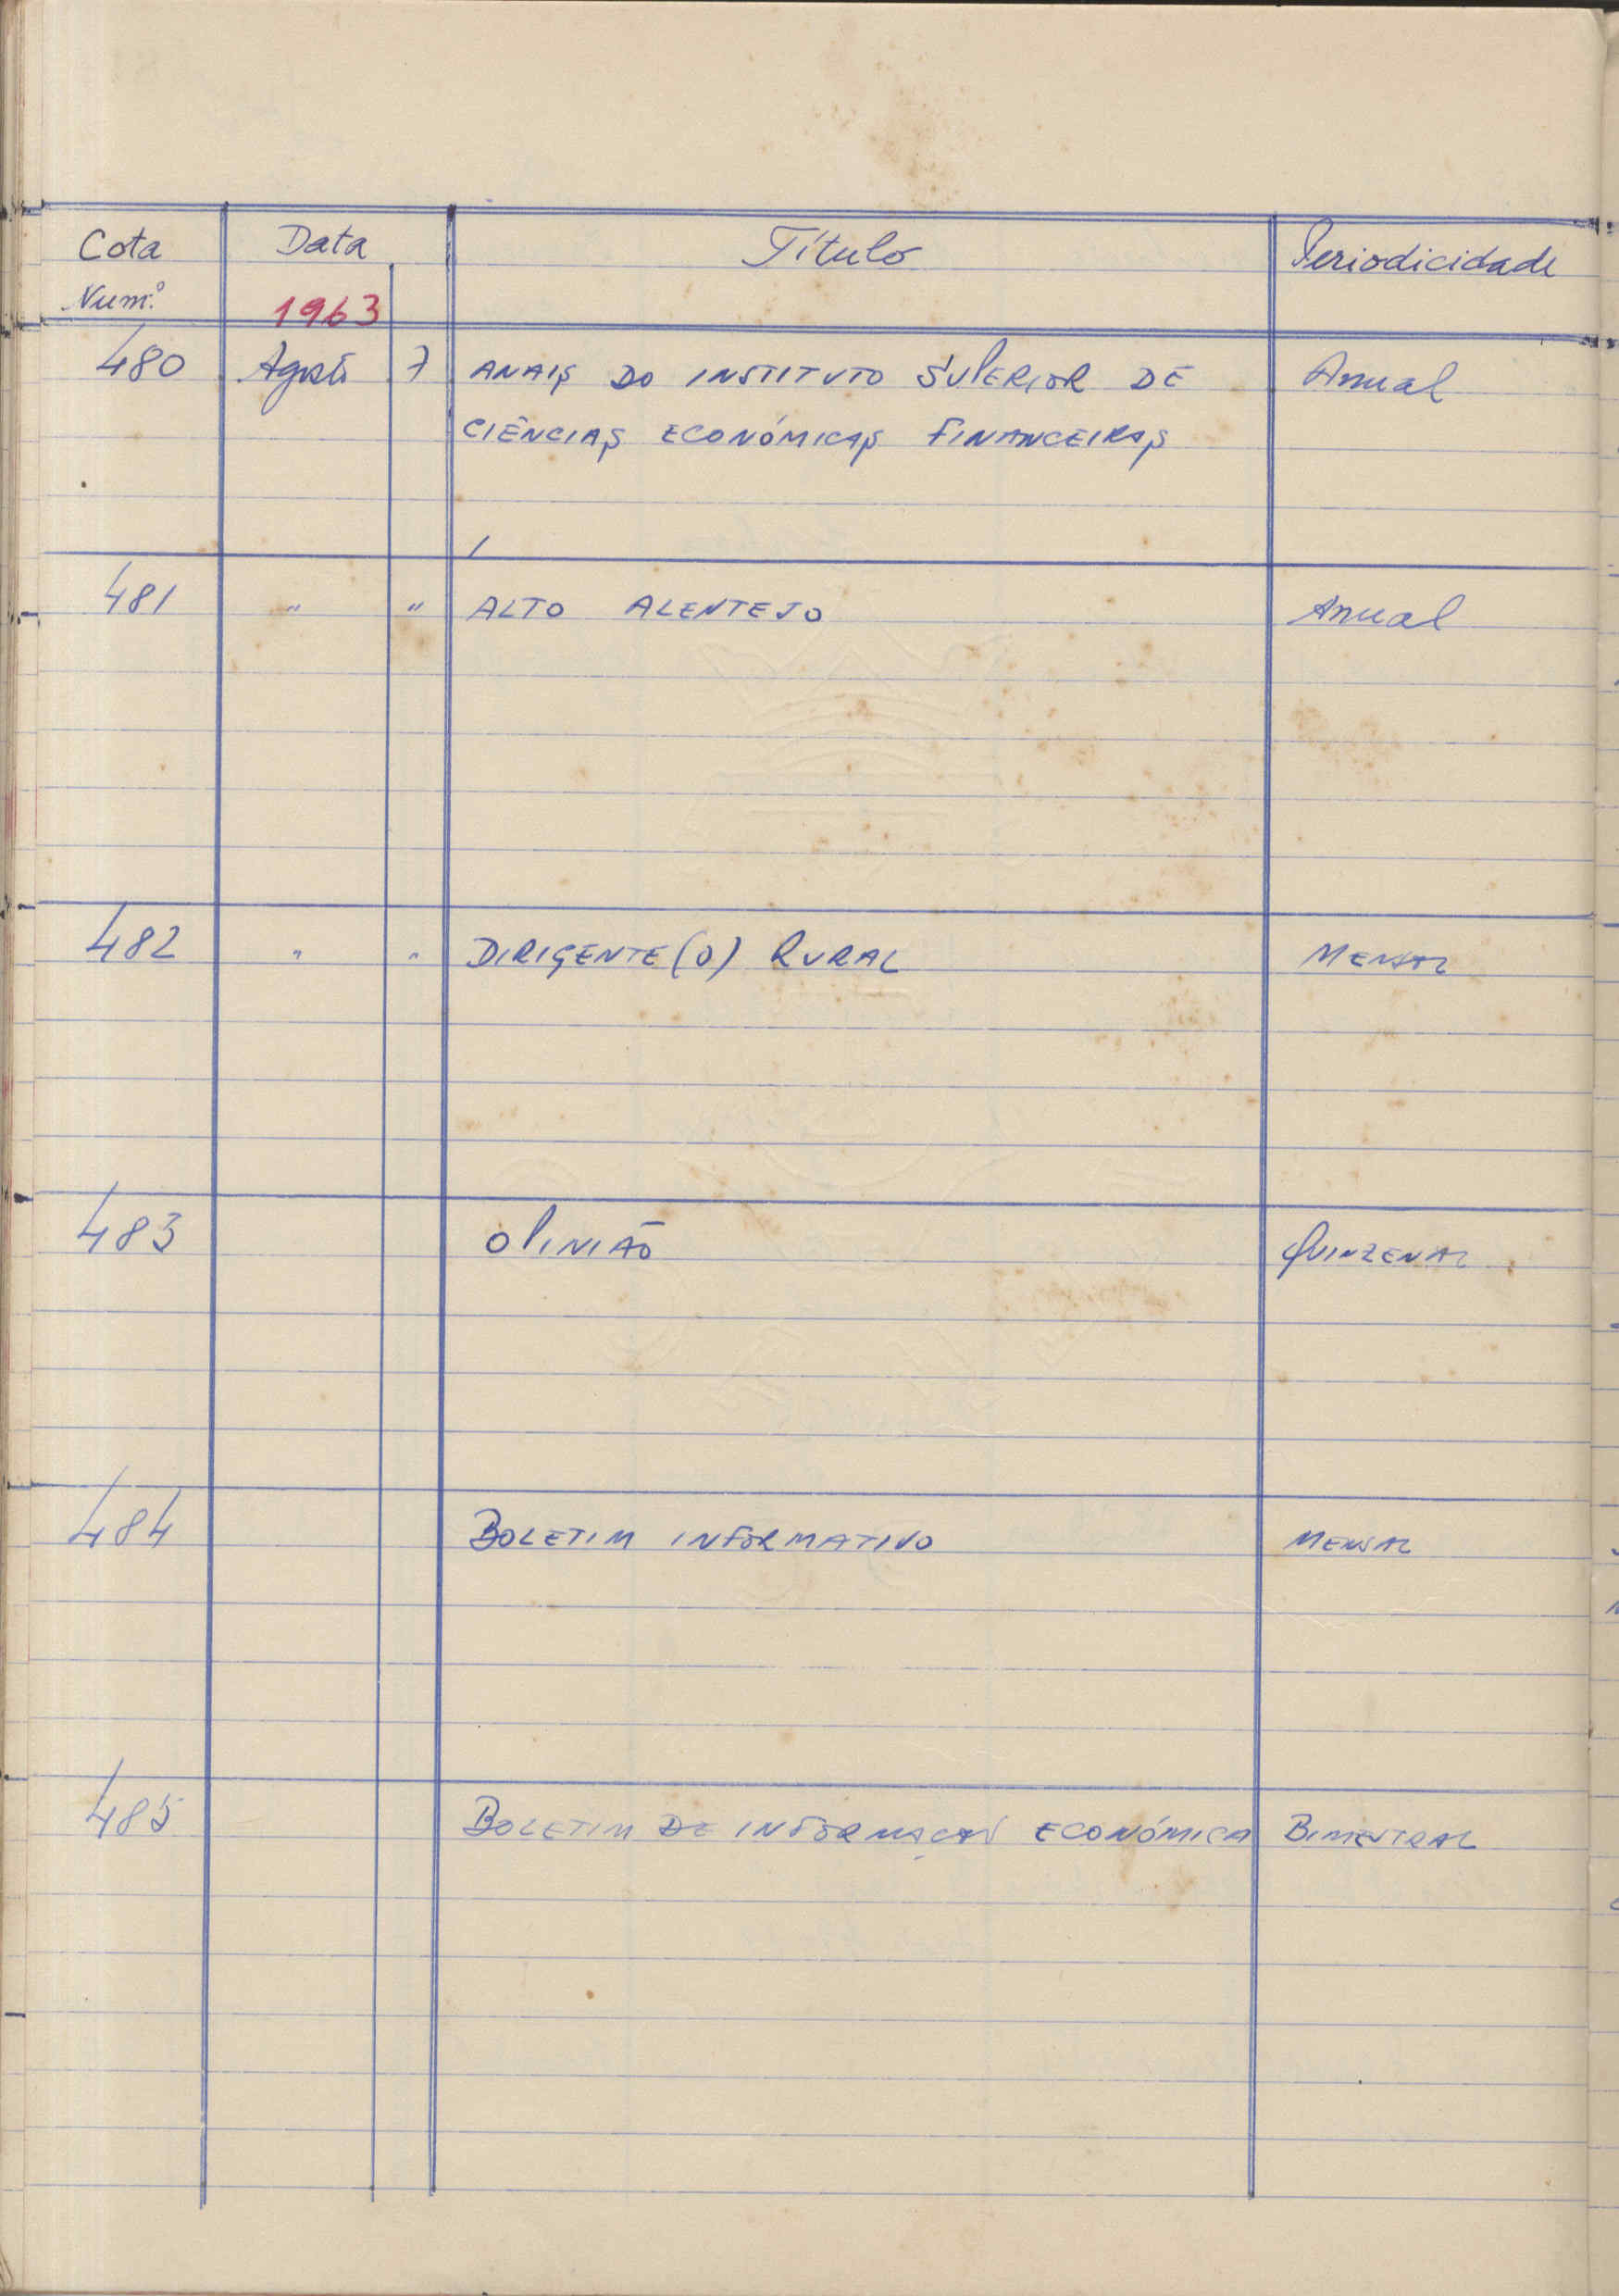 Cota Data Título Periodicidade
Num.º 1963
480 Agosto 7 ANAIS DO INSTITUTO SUPERIOR DE Anual
CIÊNCIAS ECONÓMICAS FINANCEIRAS
481 " " ALTO ALENTEJO Anual
482 " " DIRIGENTE (O) RURAL MENSAL
483 OPINIÃO QUINZENAL
484 BOLETIM INFORMATIVO MENSAL
485 BOLETIM DE INFORMAÇÃO ECONÓMICA BIMESTRAL